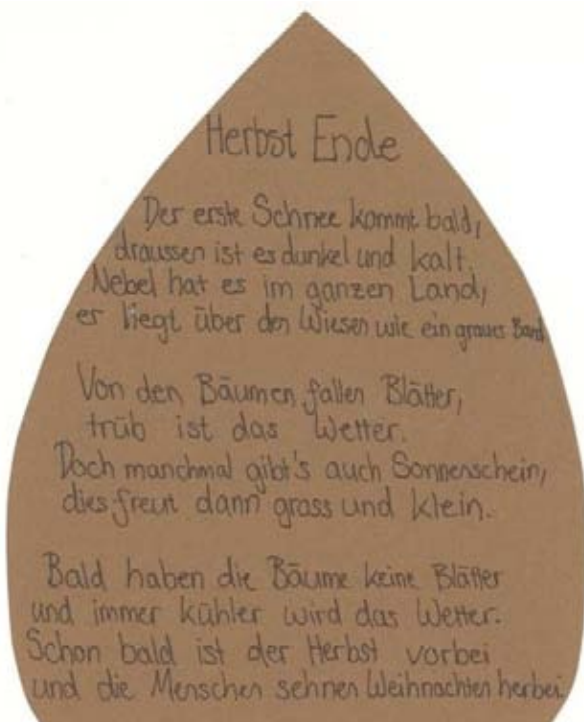 Herbst Ende
Der erste Schnee kommt bald,
draussen ist es dunkel und kalt.
Nebel hat es im ganzen Land,
er liegt über den Wiesen wie ein graues Band
Von den Bäumen fallen Blätter,
trüb ist das Wetter.
Doch manchmal gibt's auch Sonnenschein,
dies freut dann gross und klein.
Bald haben die Bäume keine Blätter
und immer kühler wird das Wetter.
Schon bald ist der Herbst vorbei
und die Menschen sehnen Weihnachten herbei